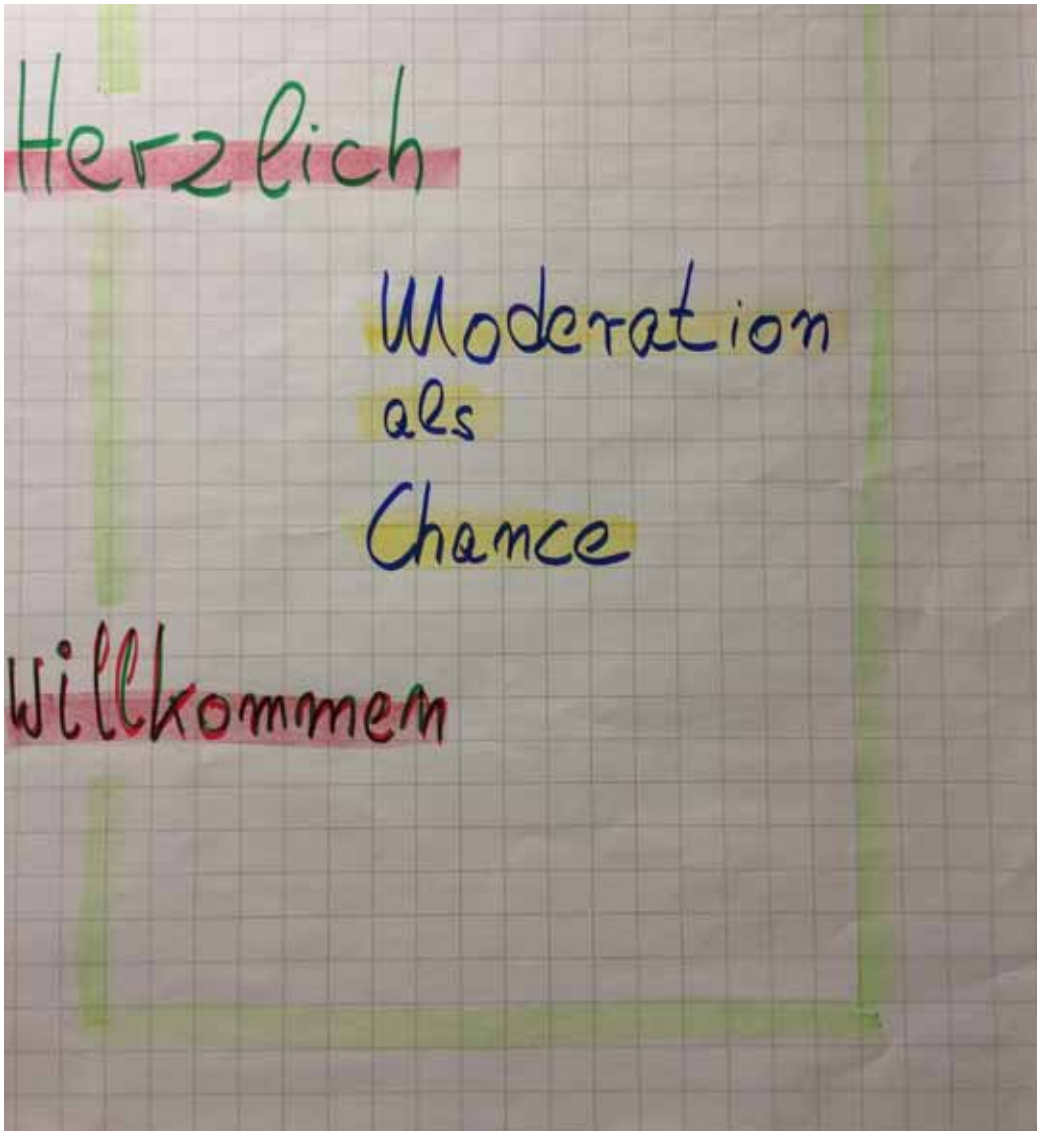 Herzlich
Moderation
als
Chance
willkommen